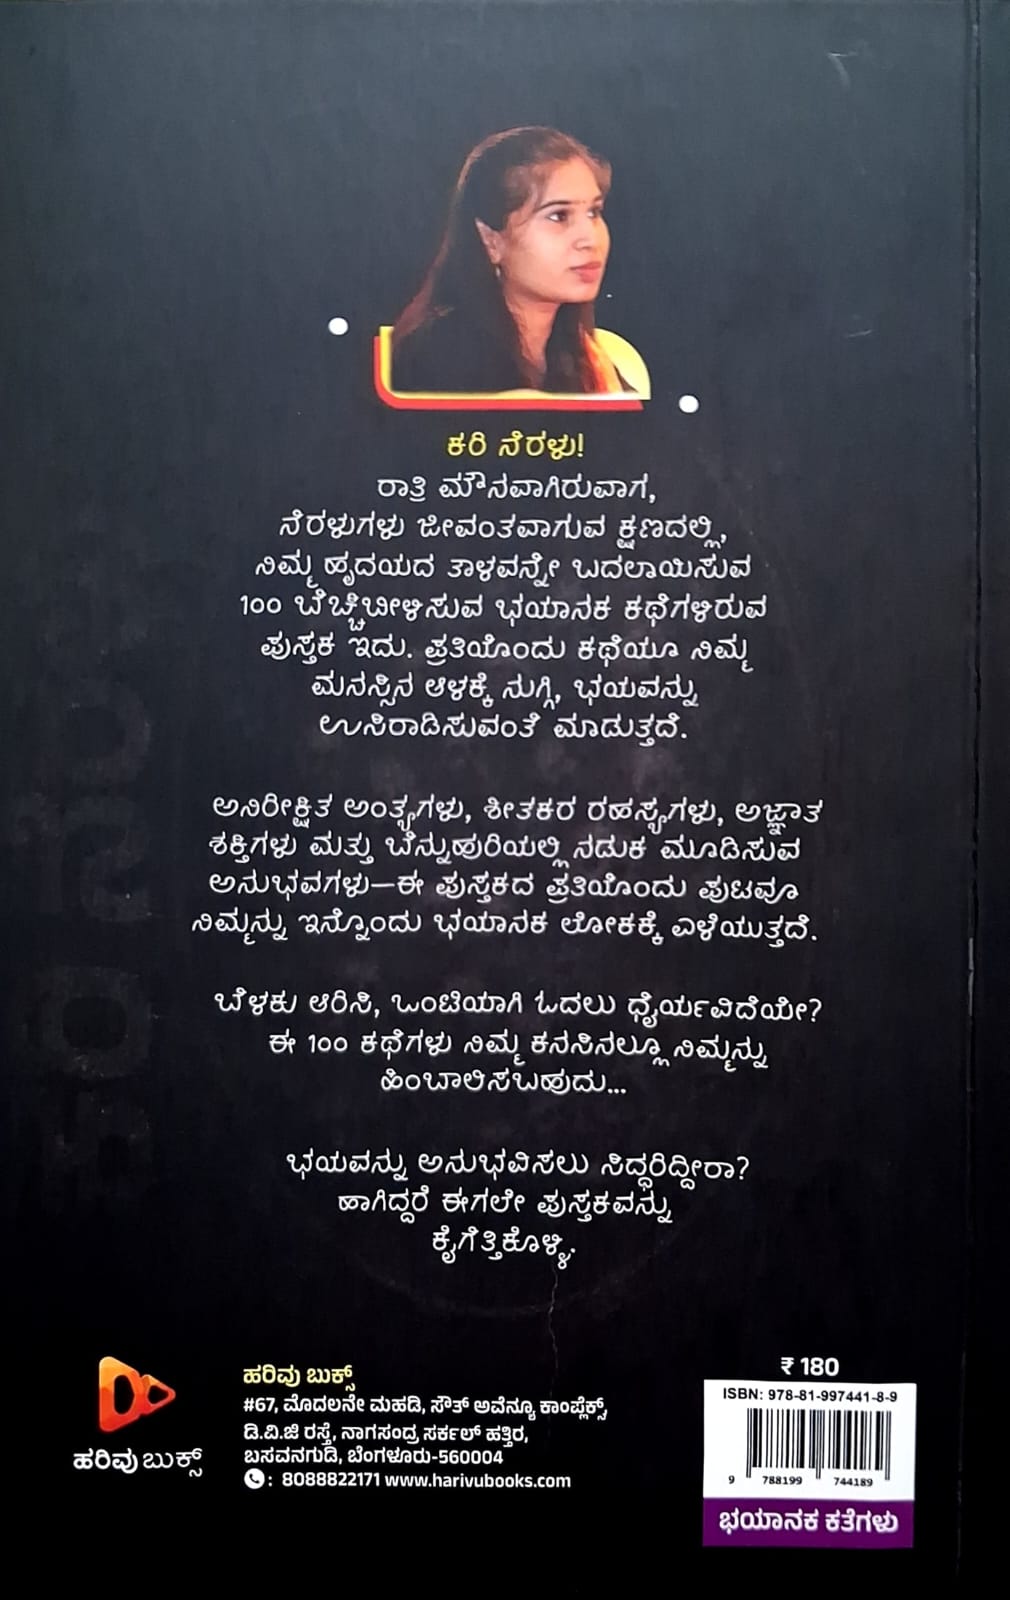 ಕರಿ ನೆರಳು!
ರಾತ್ರಿ ಮೌನವಾಗಿರುವಾಗ,
ನೆರಳುಗಳು ಜೀವಂತವಾಗುವ ಕ್ಷಣದಲ್ಲಿ,
ನಿಮ್ಮ ಹೃದಯದ ತಾಳವನ್ನೇ ಬದಲಾಯಿಸುವ
100 ಬೆಚ್ಚಿಬೀಳಿಸುವ ಭಯಾನಕ ಕಥೆಗಳಿರುವ
ಪುಸ್ತಕ ಇದು. ಪ್ರತಿಯೊಂದು ಕಥೆಯೂ ನಿಮ್ಮ
ಮನಸ್ಸಿನ ಆಳಕ್ಕೆ ನುಗ್ಗಿ, ಭಯವನ್ನು
ಉಸಿರಾಡಿಸುವಂತೆ ಮಾಡುತ್ತದೆ.
ಅನಿರೀಕ್ಷಿತ ಅಂತ್ಯಗಳು, ಶೀತಕರ ರಹಸ್ಯಗಳು, ಅಜ್ಞಾತ
ಶಕ್ತಿಗಳು ಮತ್ತು ಬೆನ್ನುಹುರಿಯಲ್ಲಿ ನಡುಕ ಮೂಡಿಸುವ
ಅನುಭವಗಳು—ಈ ಪುಸ್ತಕದ ಪ್ರತಿಯೊಂದು ಪುಟವೂ
ನಿಮ್ಮನ್ನು ಇನ್ನೊಂದು ಭಯಾನಕ ಲೋಕಕ್ಕೆ ಎಳೆಯುತ್ತದೆ.
ಬೆಳಕು ಆರಿಸಿ, ಒಂಟಿಯಾಗಿ ಓದಲು ಧೈರ್ಯವಿದೆಯೇ?
ಈ 100 ಕಥೆಗಳು ನಿಮ್ಮ ಕನಸಿನಲ್ಲೂ ನಿಮ್ಮನ್ನು
ಹಿಂಬಾಲಿಸಬಹುದು...
ಭಯವನ್ನು ಅನುಭವಿಸಲು ಸಿದ್ಧರಿದ್ದೀರಾ?
ಹಾಗಿದ್ದರೆ ಈಗಲೇ ಪುಸ್ತಕವನ್ನು
ಕೈಗೆತ್ತಿಕೊಳ್ಳಿ.
ಹರಿವು ಬುಕ್ಸ್
ಹರಿವು ಬುಕ್ಸ್
#67, ಮೊದಲನೇ ಮಹಡಿ, ಸೌತ್ ಅವೆನ್ಯೂ ಕಾಂಪ್ಲೆಕ್ಸ್,
ಡಿ.ವಿ.ಜಿ ರಸ್ತೆ, ನಾಗಸಂದ್ರ ಸರ್ಕಲ್ ಹತ್ತಿರ,
ಬಸವನಗುಡಿ, ಬೆಂಗಳೂರು-560004
: 8088822171 www.harivubooks.com
₹ 180
ISBN: 978-81-997441-8-9
9 788199 744189
ಭಯಾನಕ ಕತೆಗಳು